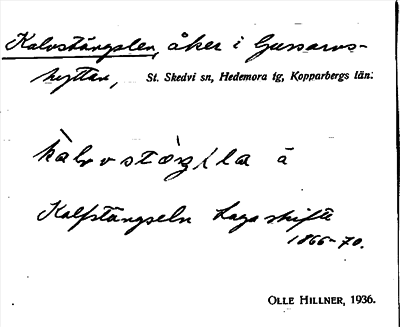 Kalvstängslen, åker i Gussarvs-
hyttan, St. Skedvi sn, Hedemora tg, Kopparbergs län.
kàlvstäŋ(la ä
Kalfstängseln Laga skifte
1866-70.
OLLE HILLNER, 1936.